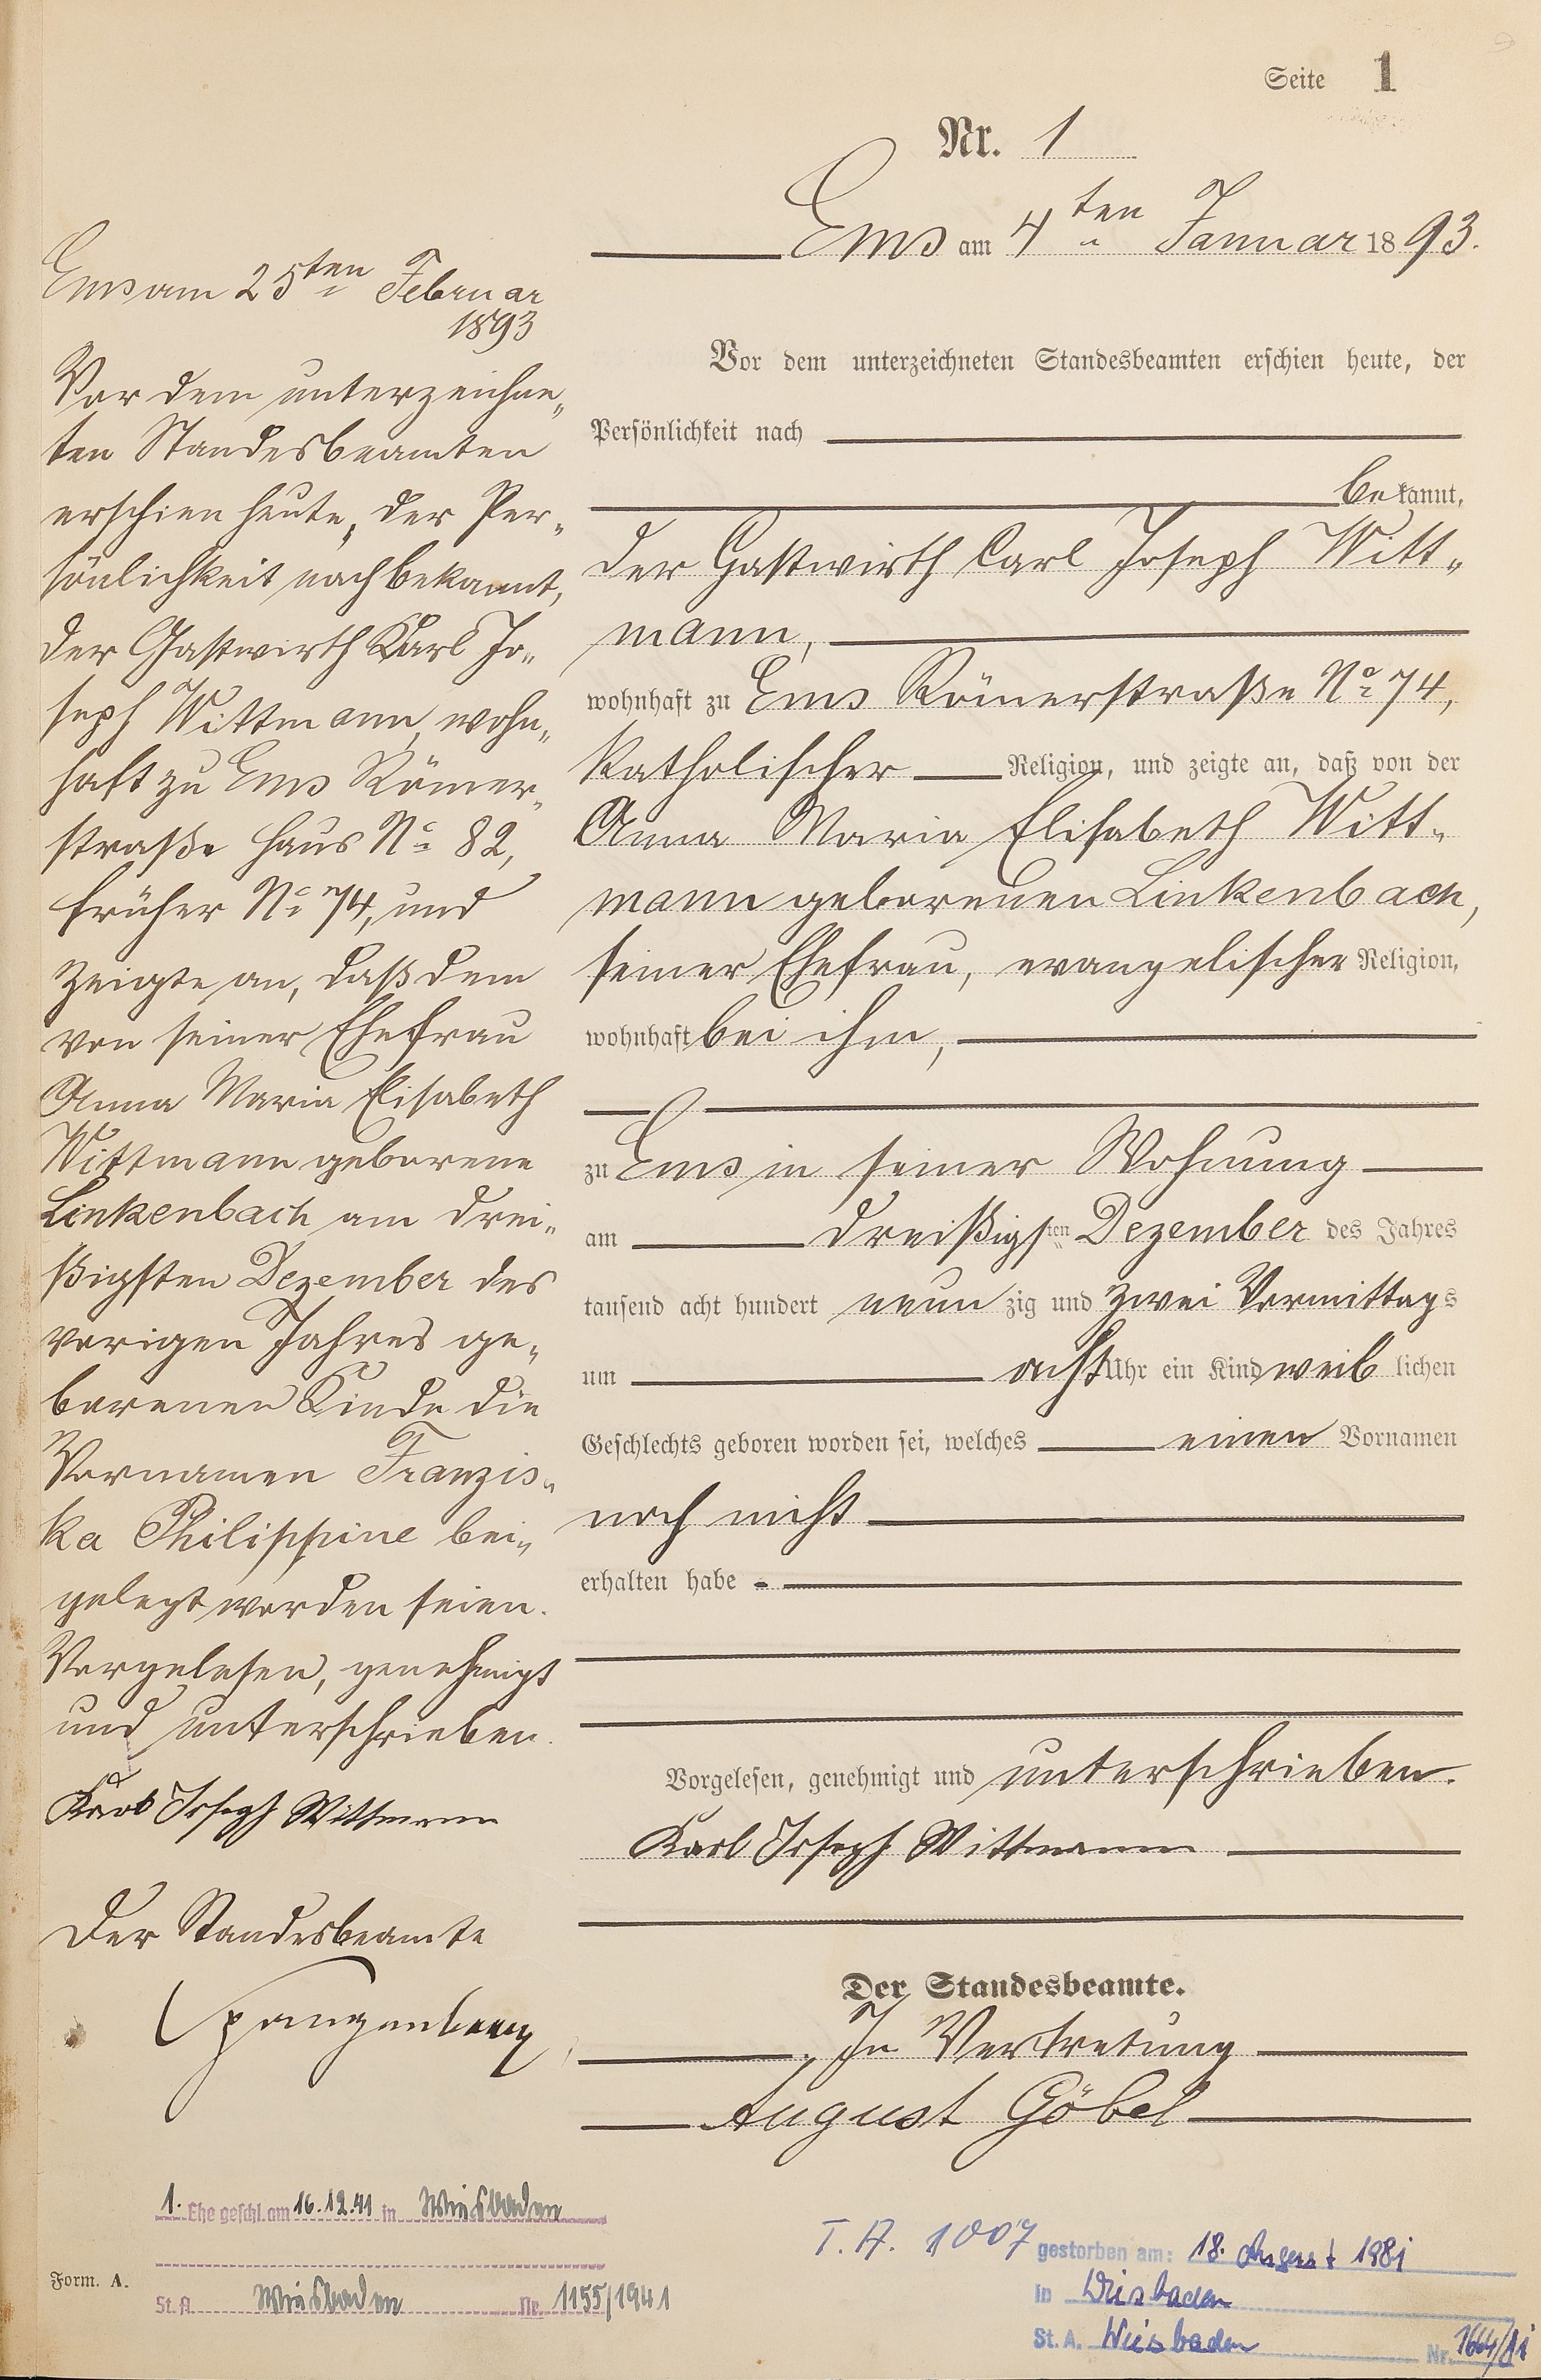 Seite 1
Nr. 1
Ems am 4ten Januar 1893.
Vor dem unterzeichneten Standesbeamten erschien heute, der
Persönlichkeit nach
bekannt,
der Gastwirth Carl Joseph Witt-
mann,
wohnhaft zu Ems Römerstraße No 74,
katholischer Religion, und zeigte an, daß von der
Anna Maria Elisabeth Witt-
mann geborenen Linkenbach,
seiner Ehefrau, evangelischer Religion,
wohnhaft bei ihm,
zu Ems in seiner Wohnung
am dreißigsten Dezember des Jahres
tausend acht hundert neunzig und zwei Vormittags
um acht Uhr ein Kind weiblichen
Geschlechts geboren worden sei, welches einen Vornamen
noch nicht
erhalten habe
Vorgelesen, genehmigt und unterschrieben.
Karl Joseph Wittmann
Der Standesbeamte.
In Vertretung
August Göbel
Ems am 25ten Februar
1893
Vor dem unterzeichne-
ten Standesbeamten
erschien heute, der Per-
sönlichkeit nach bekannt,
der Gastwirth Karl Jo-
seph Wittmann, wohn-
haft zu Ems Römer-
straße Haus No 82,
früher No 74, und
zeigte an, daß dem
von seiner Ehefrau
Anna Maria Elisabeth
Wittmann geborene
Linkenbach am drei-
ßigsten Dezember des
vorigen Jahres ge-
borenen Kinde die
Vornamen Franzis-
ka Philippine bei-
gelegt worden seien.
Vorgelesen, genehmigt
und unterschrieben.
Karl Joseph Wittmann
Der Standesbeamte
Spangenberg
1. Ehe geschl. am 16.12.41 in Wiesbaden
St. A. Wiesbaden Nr. 1155/1941
Form. A.
T. A. 1007
gestorben am: 18. August 1981
in Wiesbaden
St. A. Wiesbaden Nr.